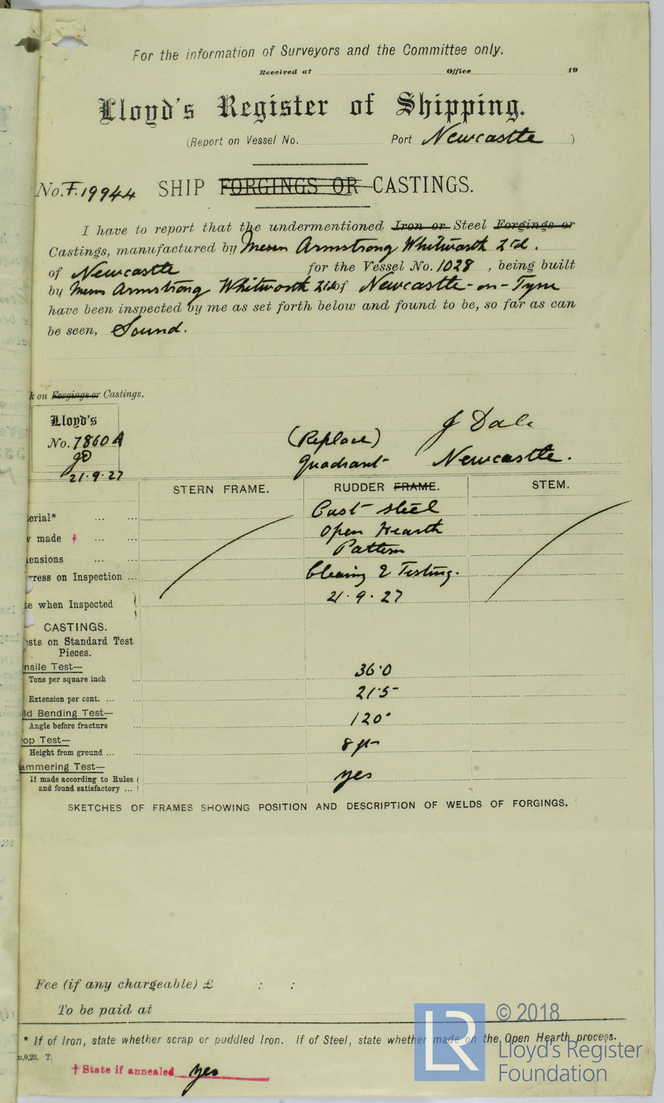 For the information of Surveyors and the Committee only.
Received at Office 19
Lloyd's Register of Shipping.
(Report on Vessel No. Port Newcastle )
No. F.19944 SHIP FORGINGS OR CASTINGS.
I have to report that the undermentioned Iron or Steel Forgings or
Castings, manufactured by Messrs Armstrong Whitworth Ltd.
of Newcastle for the Vessel No. 1028, being built
by Messrs Armstrong Whitworth Ltd of Newcastle-on-Tyne
have been inspected by me as set forth below and found to be, so far as can
be seen, Sound.
k on Forgings or Castings.
Lloyd's
No. 7860A
JD
21.9.27
(Replace)
Quadrant
J Dale
Newcastle.
STERN FRAME. RUDDER FRAME. STEM.
erial* ... ... Cast steel
w made † ... ... Open Hearth
ensions ... ... Pattern
ress on Inspection ... & Testing.
te when Inspected 21.9.27
CASTINGS.
sts on Standard Test
Pieces.
nsile Test—
Tons per square inch ... 36.0
Extension per cent. ... ... 21.5
ld Bending Test—
Angle before fracture ... 120°
op Test—
Height from ground ... ... 8 ft
ammering Test—
If made according to Rules
and found satisfactory ... yes
SKETCHES OF FRAMES SHOWING POSITION AND DESCRIPTION OF WELDS OF FORGINGS.
Fee (if any chargeable) £ : :
To be paid at
* If of Iron, state whether scrap or puddled Iron. If of Steel, state whether made on the Open Hearth process.
† State if annealed yes
LR © 2018
Lloyd's Register
Foundation